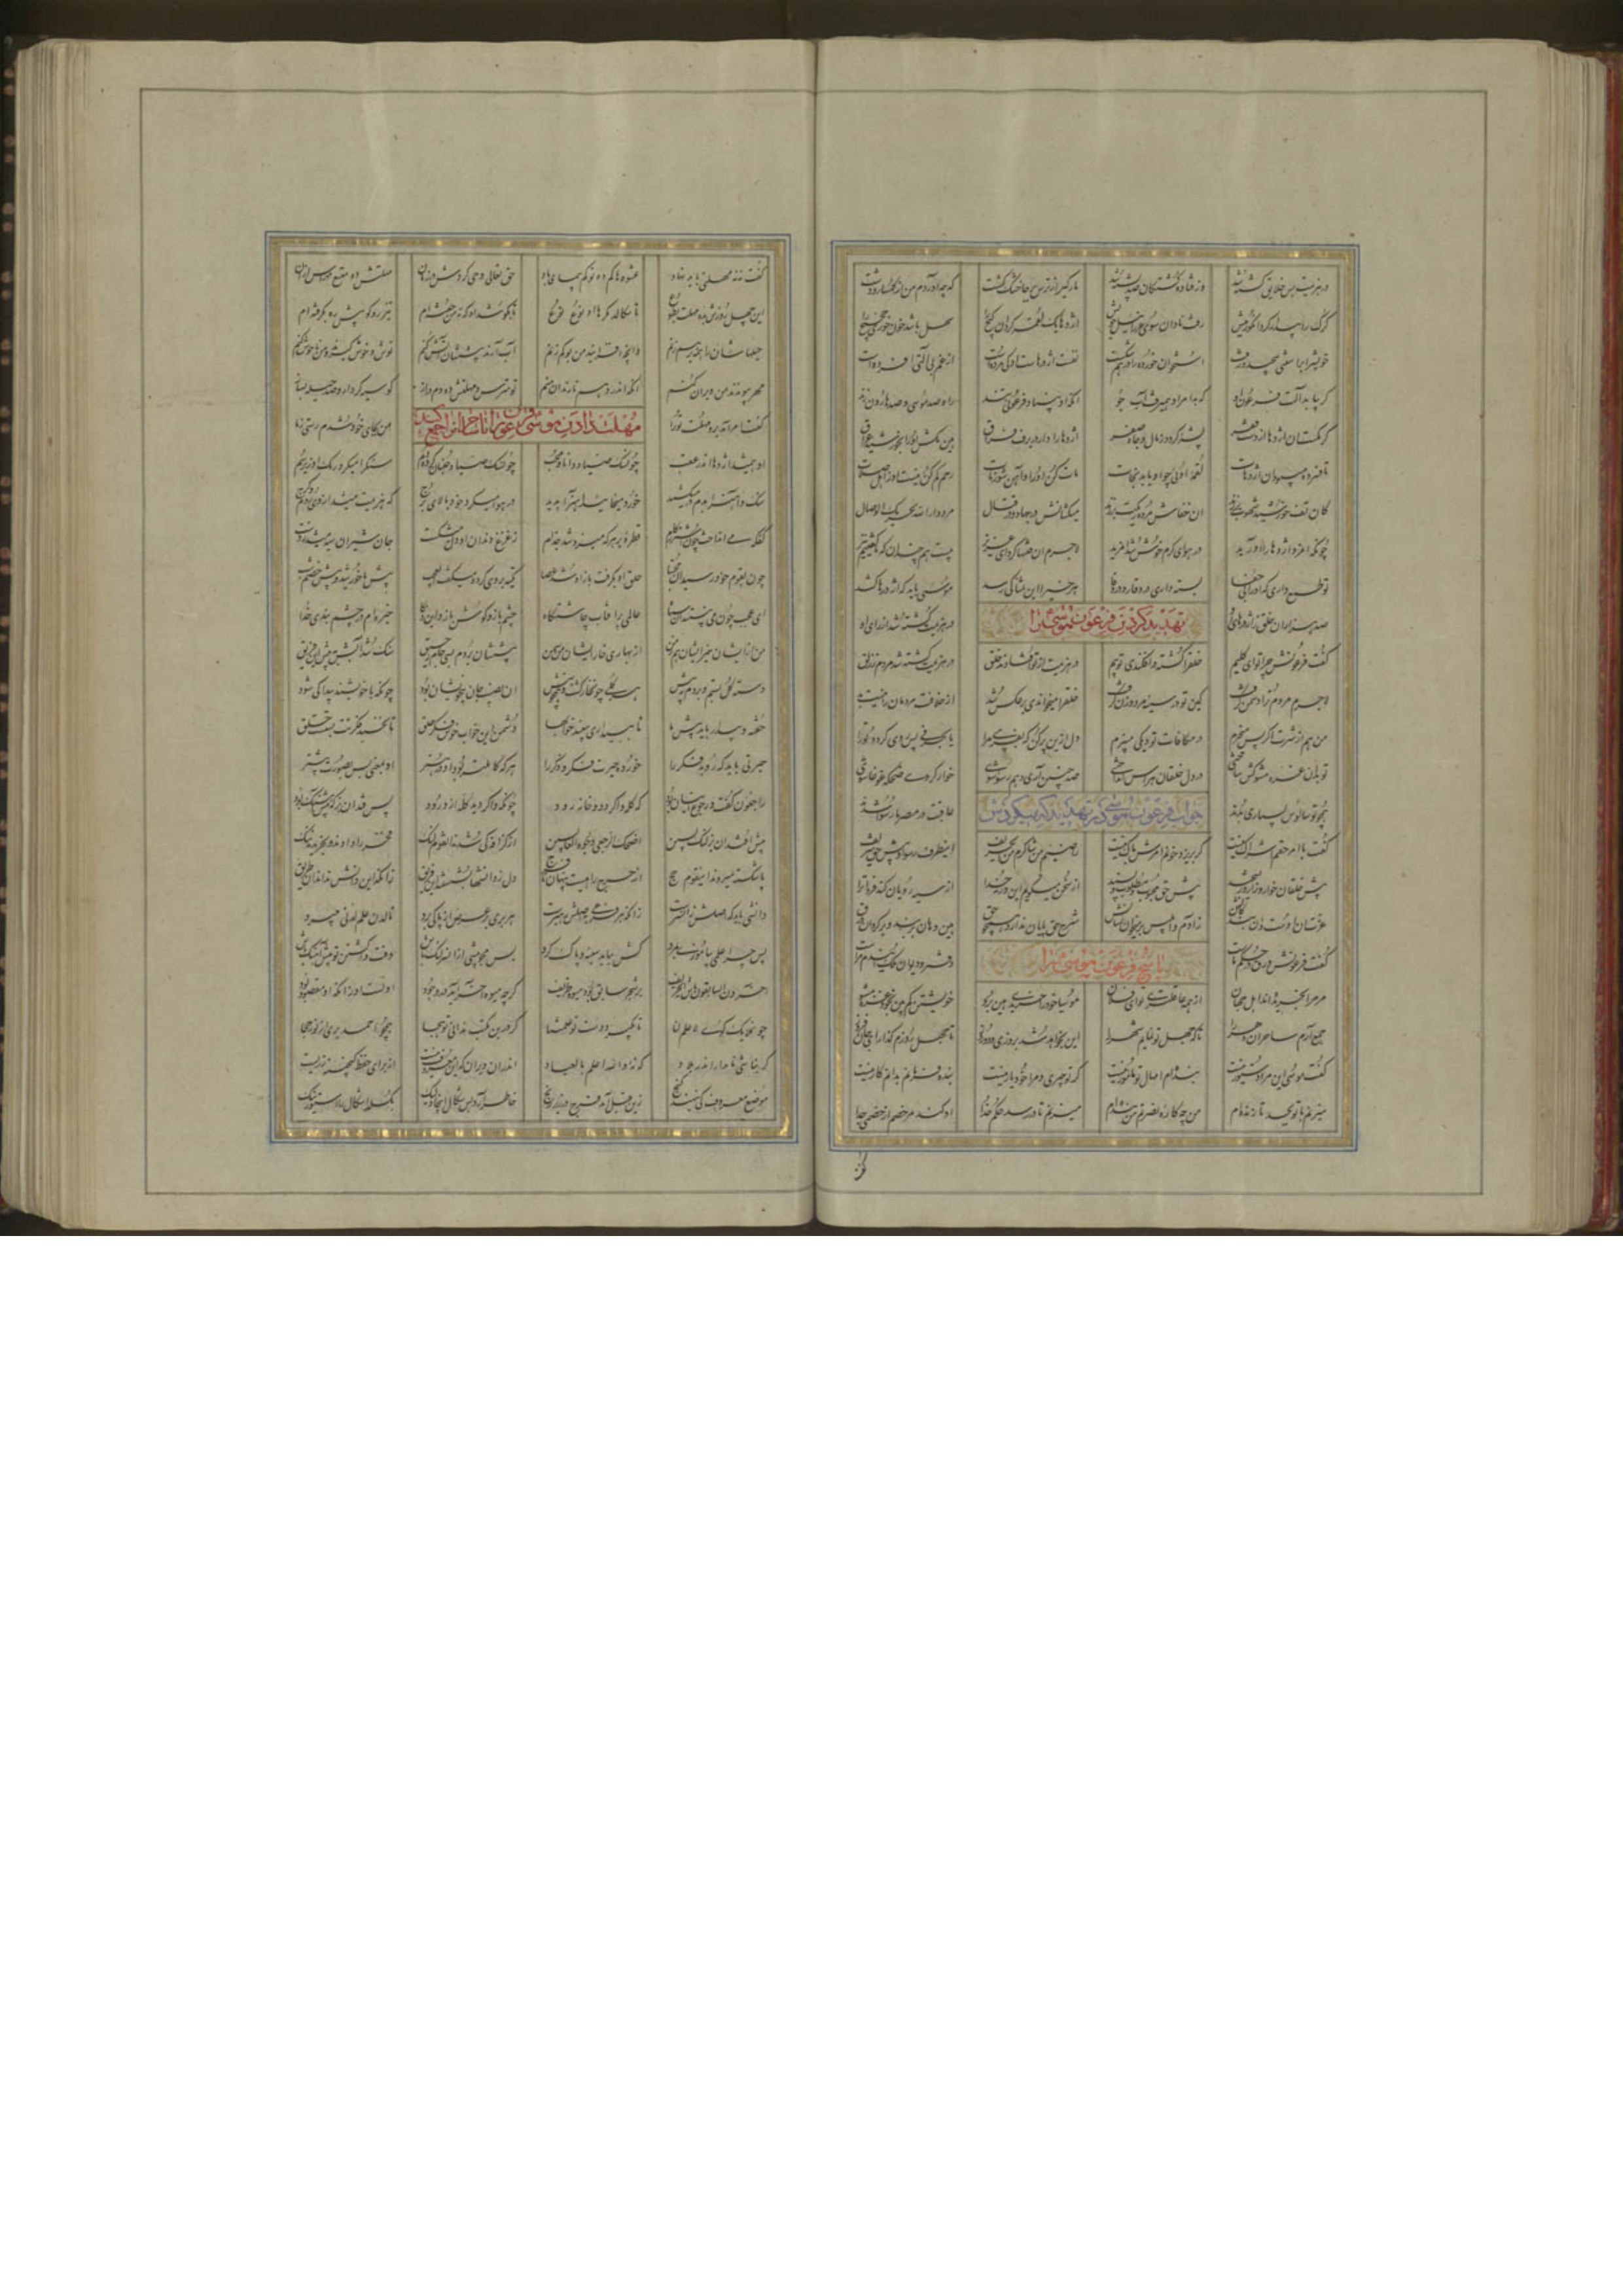 در هزیمت بس خلایق کشته شد وز فتاده کشتگان صد پشته شد مارگیر از ترس بر جا خشک گشت که چه آوردم من از کهسار و دشت
گرگ را بیدار کرد آن کور میش رفت نادان سوی عزرائیل خویش اژدها یک لقمه کرد آن گیج را سهل باشد خون خوری حجیج را
خویش را بر استنی پیچید و بست استخوان خورده را در هم شکست نفست اژدرهاست او کی مرده است از غم بی آلتی افسرده است
گر بیابد آلت فرعون او که بامر او همی رفت آب جو آنگه او بنیاد فرعونی کند راه صد موسی و صد هارون زند
کرمکست آن اژدها از دست فقر پشه گردد ز مال و جاه صقر اژدها را دار در برف فراق هین مکش او را بخورشید عراق
تا فسرده می بود آن اژدهات لقمه اوئی چو او یابد نجات مات کن او را و ایمن شو ز مات رحم کم کن نیست او ز اهل صلات
کان تف خورشید شهوت بر زند آن خفاش مرده ریگت پر زند میکشانش در جهاد و در قتال مردوار الله یجزیک الوصال
چونکه آن مرد اژدها را آورید در هوای گرم خوش شد آن مرید لاجرم آن فتنها کرد ای عزیز بیست همچندان که گفتیم نیز
تو طمع داری که او را بی جفا بسته داری در وقار و در وفا هر خسی را این تمنا کی رسد موسئی باید که اژدرها کشد
صد هزاران خلق ز اژدرهای او در هزیمت کشته شد از رای او
تهدید کردن فرعون موسی را
گفت فرعونش چرا تو ای کلیم خلق را کشتی و افکندی تو بیم در هزیمت از تو افتادند خلق در هزیمت کشته شد مردم ز زلق
لاجرم مردم ترا دشمن گرفت کین تو در سینه مرد و زن گرفت خلق را میخواندی بر عکس شد از خلافت مردمان را نیست بد
من هم از شرت اگر پس میخزم در مکافات تو دیگی میپزم دل ازین بر کن که بفریبی مرا یا بجز فی پس روی گردد ترا
تو بدان غره مشو کش ساختی در دل خلقان هراس انداختی صد چنین آری و هم رسوا شوی خوار گردی ضحکه غوغا شوی
همچو تو سالوس بسیاری بدند عاقبت در مصر ما رسوا شدند
جواب فرعون موسی در تهدید که میکردش
گفت با امر حقم اشراک نیست گر بریزد خونم امرش باک نیست راضیم من شاکرم من ای حریف اینطرف رسوا و پیش حق شریف
پیش خلقان خوار و زار و ریشخند پیش حق محبوب و مطلوب و پسند از سخن میگویم این ورنه خدا از سیه رویان کند فردا ترا
عزت آن اوست و آن بندگانش ز آدم و ابلیس بر میخوان نشانش شرح حق پایان ندارد همچو حق هین دهان بر بند و برگردان ورق
گفت فرعونش ورق در حکم ماست دفتر و دیوان حکم این دم مراست
پاسخ فرعون موسی را
مر مرا بخریده اند اهل جهان از همه عاقلتری تو ای فلان موسیا خود را خریدی هین برو خویشتن کم بین بخود غره مشو
جمع آرم ساحران دهر را تا که جهل تو نمایم شهر را این نخواهد شد بروزی و دو روز تا چهل روزم گذار
گفت موسی این مرا دستور نیست بنده ام امهال تو مامور نیست گر تو چیری و مرا خود یار نیست بنده فرمانم بدانم کار نیست
میزنم با تو بجد تا زنده ام من چه کاره نصرتم من بنده ام میزنم تا در رسد حکم خدا او کند هر خصم از خصمی جدا
گفت نه نه مهلتی باید نهاد عشوه ها کم ده تو کم پیمای باد حق تعالی وحی کردش در زمان مهلتش ده متسع مهراس از آن
این چهل روزش بده مهلت بطوع تا سگالد مکرها او نوع نوع تا بکوشد او که نه من خفته ام تیز رو گو پیش ره بگرفته ام
حیلهاشان را همه برهم زنم وانچه افزایند من بر کم زنم آب آرند آتش کنم نوش و خوش گیرند و من ناخوش کنم
مهر پیوندند من ویران کنم آنکه اندر وهم نارند آن کنم تو مترس و مهلتش ده دم دراز گو سپه گرد آر و صد حیلت بساز
گفت امر آمد برو مهلت ترا من بجای خود شدم رستی ز ما
مهلت دادن موسی فرعون را تا ساحران را جمع کند
او همیشد اژدها اندر عقب چون سگ صیاد دانا و محب چون سگ صیاد جنبان کرده دم سنگ را میکرد ریگ او زیر سم
سنگ و آهن را بدم در میکشید خرد میخائید آهن را پدید در هوا میکرد خود بالای برج که هزیمت میشد از وی روم و گرج
کفک می انداخت چون اشتر ز کام قطره بر هر که میزد شد جذام ژغژغ دندان او دل میشکست جان شیران سیه میشد ز دست
چون بقوم خود رسید آن مجتبا حلق او بگرفت باز او شد عصا تکیه بر وی کرد و میگفت ای عجب پیش ما خورشید و پیش خصم شب
ای عجب چون می نبیند این سپاه عالمی پر آفتاب چاشتگاه چشم باز و گوش باز و این ذکا خیره ام در چشم بندی خدا
من ازیشان خیره ایشان هم ز من از بهاری خار ایشان من سمن پیششان بردم بسی جام رحیق سنگ شد آبش پیش این فریق
دسته گل بستم و بردم پیش هر گلی چون خار گشت و نوش نیش آن نصیب جان بیخویشان بود چونکه با خویشند پیدا کی شود
خفته بیدار باید پیش ما تا ببیداری ببیند خوابها دشمن این خواب خوش شد فکر خلق تا نخسبد فکرتش بستست حلق
حیرتی باید که روبد فکر را خورده حیرت فکر و ذکر را هر که کاملتر بود او در هنر او بمعنی پس بصورت پیشتر
راجعون گفت و رجوع اینسان بود که گله واگردد و خانه رود چونکه واگردید گله از ورود پس فتد آن بز که پیش آهنگ بود
پیش افتد آن بز لنگ پسین اضحک الرجعی وجوه العابسین از گزافه کی شدند این قوم لنگ فخر را دادند و بخریدند ننگ
پا شکسته میروند این قوم حج از حرج راهیست پنهان تا فرج دل ز دانشها بشستند این فریق زانکه این دانش نداند آن طریق
دانشی باید که اصلش زان سرست زانکه هر فرعی باصلش رهبرست هر پری بر عرض دریا کی پرد تا لدن علم لدنی میبرد
پس چرا علمی بیاموزی بمرد کش بباید سینه را زان پاک کرد پس مجو پیشی ازین سر لنگ باش وقت واگشتن تو پیش آهنگ باش
آخرون السابقون باش ای حریف بر شجر سابق بود میوه ظریف گرچه میوه آخر آید در وجود اولست او زانکه او مقصود بود
چون ملایک گوی لا علم لنا تا بگیرد دست تو علمتنا گر درین مکتب ندانی تو هجا همچو احمد پری از نور حجا
گر نباشی نامدار اندر بلاد گم نه والله اعلم بالعباد اندران ویران که آن معروف نیست از برای حفظ گنجینه زریست
موضع معروف کی بنهند گنج زین قبل آمد فرج در زیر رنج خاطر آرد بس شکال اینجا ولیک بگسلد اشکال را استور نیک